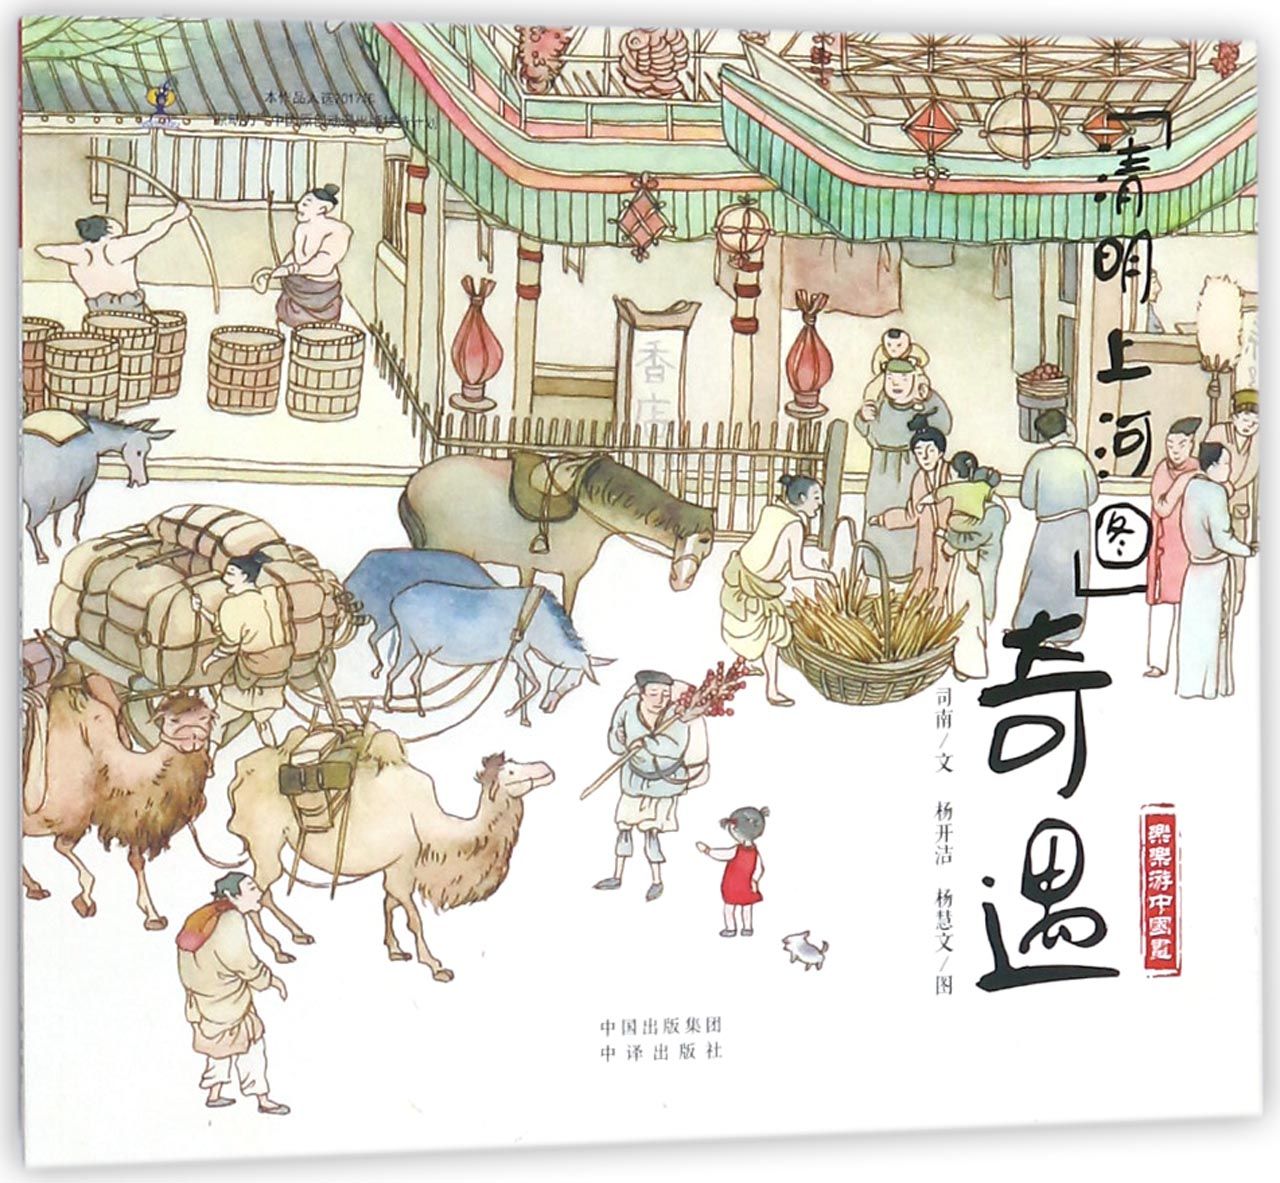 本作品入选2017年
「清明上河图」
奇遇
司南/文 杨开洁 杨慧文/图
樂樂游中國畫
香店
中国出版集团
中译出版社